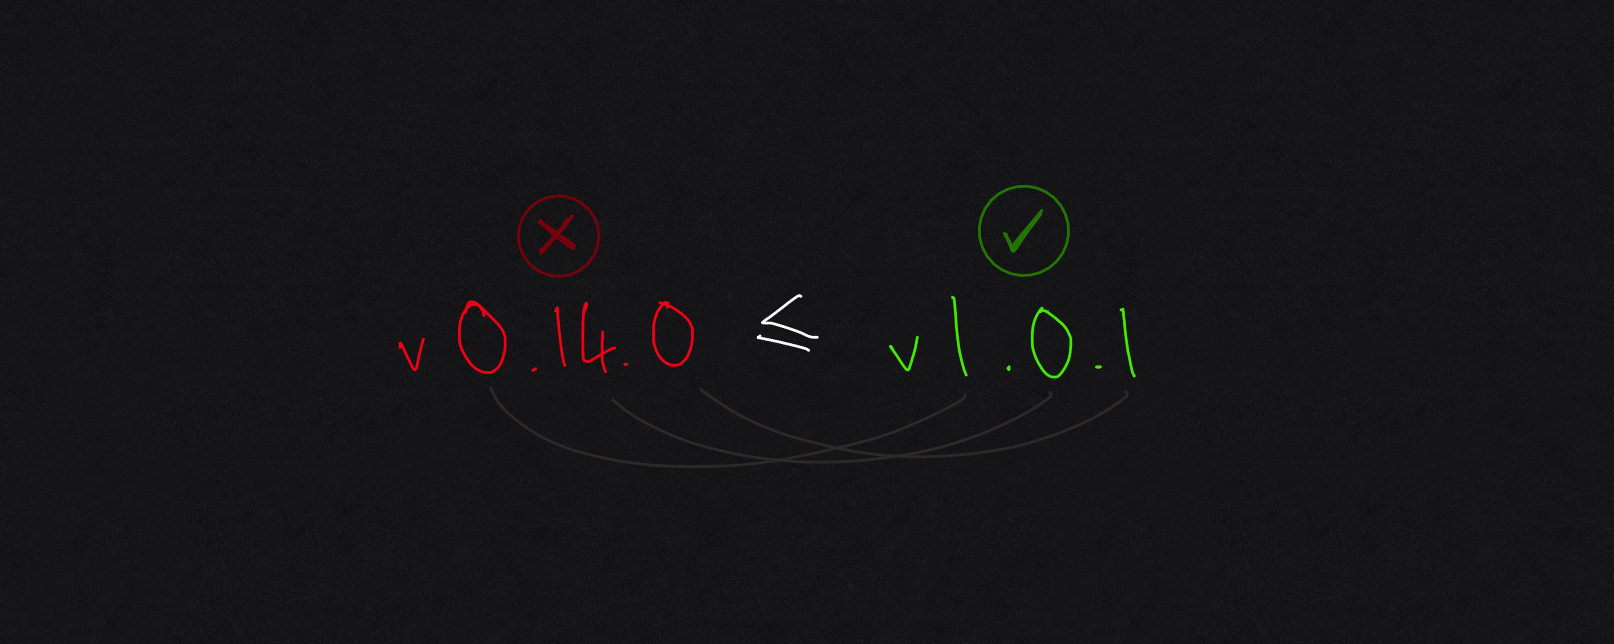 v0.14.0 ≤ v1.0.1